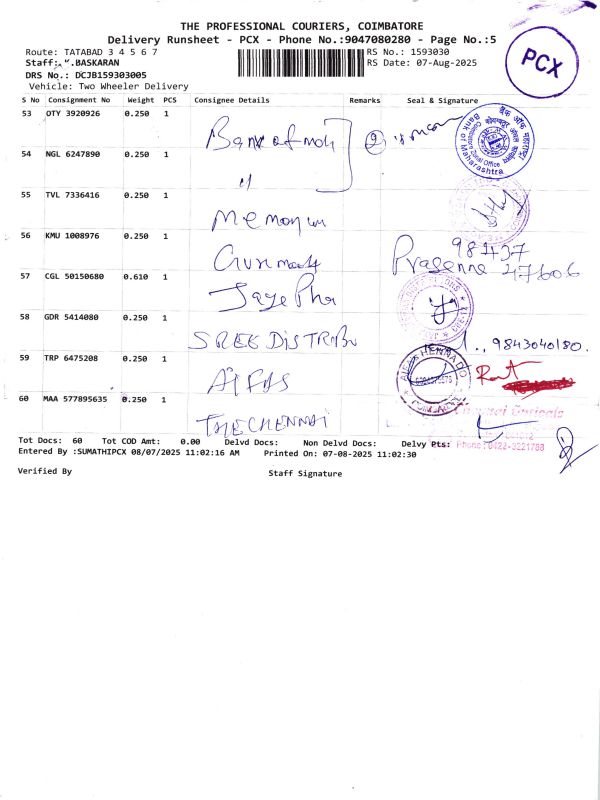 THE PROFESSIONAL COURIERS, COIMBATORE
Delivery Runsheet - PCX - Phone No.:9047080280 - Page No.:5
Route: TATABAD 3 4 5 6 7
RS No.: 1593030
PCX
Staff: .BASKARAN
RS Date: 07-Aug-2025
DRS No.: DCJB159303005
Vehicle: Two Wheeler Delivery
S No Consignment No Weight PCS Consignee Details Remarks Seal & Signature
53 OTY 3920926 0.250 1 Bank of mah 2
बैंक ऑफ महाराष्ट्र
Bank of Maharashtra
Coimbatore Zonal Office
54 NGL 6247890 0.250 1 "
55 TVL 7336416 0.250 1
56 KMU 1008976 0.250 1 Prasanna 98437 47606
57 CGL 50150680 0.610 1 Jaye Pha
58 GDR 5414080 0.250 1 SREE DISTRIBU 9843040180.
59 TRP 6475208 0.250 1
60 MAA 577895635 0.250 1 THE CHENNAI
Tot Docs: 60 Tot COD Amt: 0.00 Delvd Docs: Non Delvd Docs: Delvy Pts:
Phone:0422-3221788
Entered By :SUMATHIPCX 08/07/2025 11:02:16 AM Printed On: 07-08-2025 11:02:30
Verified By Staff Signature